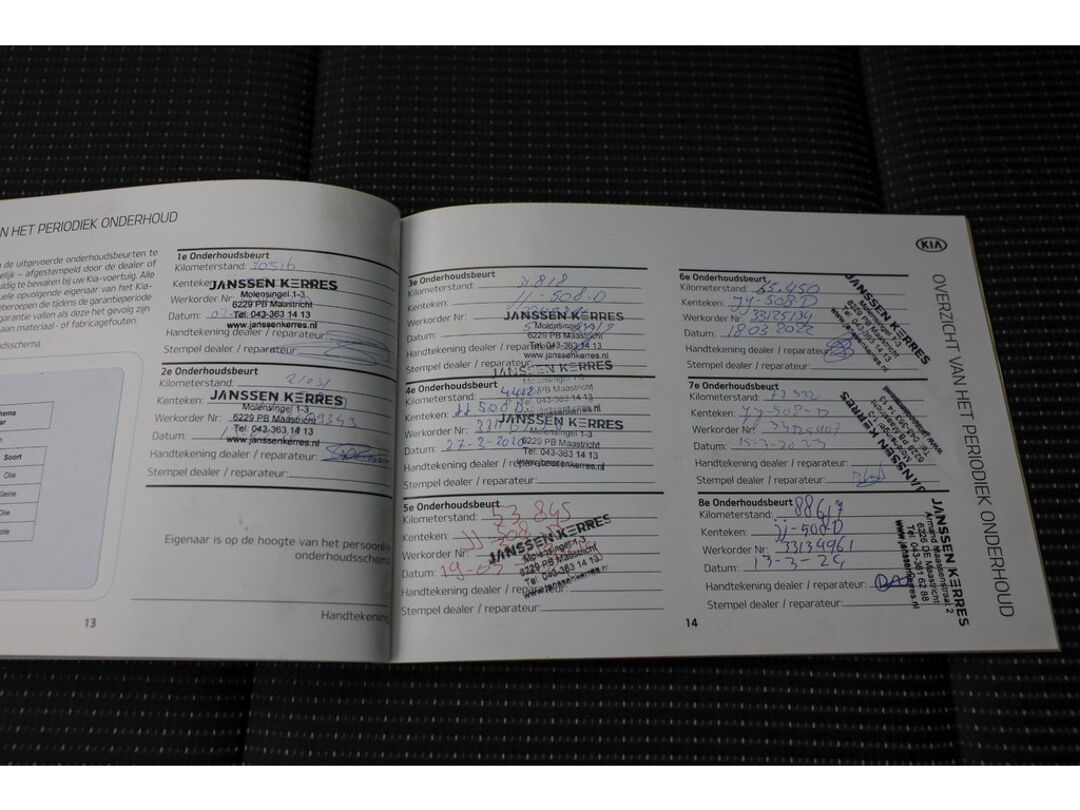 N HET PERIODIEK ONDERHOUD
de uitgevoerde onderhoudsbeurten te
elijk – afgestempeld door de dealer of
uldig te bewaren bij uw Kia-voertuig. Alle
uele opvolgende eigenaar van het Kia-
beroepen die tijdens de garantieperiode
garantie vallen als deze het gevolg zijn
aan materiaal- of fabricagefouten.
dsschema.
hema
ar
Soort
Olie
Kleine
Olie
ote
13
1e Onderhoudsbeurt
Kilometerstand: 10516
Kenteke
JANSSEN KERRES
Molensingel 1-3
Werkorder Nr:
6229 PB Maastricht
Datum:
Tel. 043-363 14 13
www.janssenkerres.nl
Handtekening dealer / reparateur:
Stempel dealer / reparateur:
2e Onderhoudsbeurt
Kilometerstand: 21031
Kenteken:
JANSSEN KERRES
Molensingel 1-3
Werkorder Nr:
6229 PB Maastricht
Datum:
Tel. 043-363 14 13
www.janssenkerres.nl
Handtekening dealer / reparateur:
Stempel dealer / reparateur:
Eigenaar is op de hoogte van het persoonlijk
onderhoudsschema
Handtekening
3e Onderhoudsbeurt
Kilometerstand: 31818
Kenteken: JJ-508-D
JANSSEN KERRES
Werkorder Nr:
Molensingel 1-3
6229 PB Maastricht
Datum:
Tel. 043-363 14 13
Handtekening dealer / reparateur
www.janssenkerres.nl
Stempel dealer / reparateur:
JANSSEN KERRES
4e Onderhoudsbeurt
Kilometerstand:
Kenteken: JJ508D
JANSSEN KERRES
Werkorder Nr:
Molensingel 1-3
Datum: 27-2-2020
6229 PB Maastricht
Tel. 043-363 14 13
Handtekening dealer / rep
Stempel dealer / reparateur:
5e Onderhoudsbeurt
Kilometerstand: 53845
Kenteken: JJ-508-D
JANSSEN KERRES
Werkorder Nr:
Molensingel 1-3
6229 PB Maastricht
Datum: 19-03
Tel. 043-363 14 13
www.janssenkerres.nl
Handtekening dealer / reparateur:
Stempel dealer / reparateur:
14
6e Onderhoudsbeurt
Kilometerstand: 65.450
Kenteken: JJ-508-D
Werkorder Nr: 33125134
Datum: 18 03 2022
Handtekening dealer / reparateur:
Stempel dealer / reparateur:
JANSSEN KERRES
Molensingel 1-3
6229 PB Maastricht
Tel. 043-363 14 13
www.janssenkerres.nl
7e Onderhoudsbeurt
Kilometerstand:
Kenteken: JJ-508-D
Werkorder Nr:
Datum: 15-3-2023
Handtekening dealer / reparateur:
Stempel dealer / reparateur:
JANSSEN KERRES
Molensingel 1-3
6229 PB Maastricht
Tel. 043-363 14 13
www.janssenkerres.nl
8e Onderhoudsbeurt
Kilometerstand: 88617
Kenteken: JJ-508-D
Werkorder Nr: 33134961
Datum: 13-3-24
Handtekening dealer / reparateur:
Stempel dealer / reparateur:
JANSSEN KERRES
Armand Maassenstraat 2
6226 DE Maastricht
Tel. 043-361 62 88
www.janssenkerres.nl
KIA
OVERZICHT VAN HET PERIODIEK ONDERHOUD